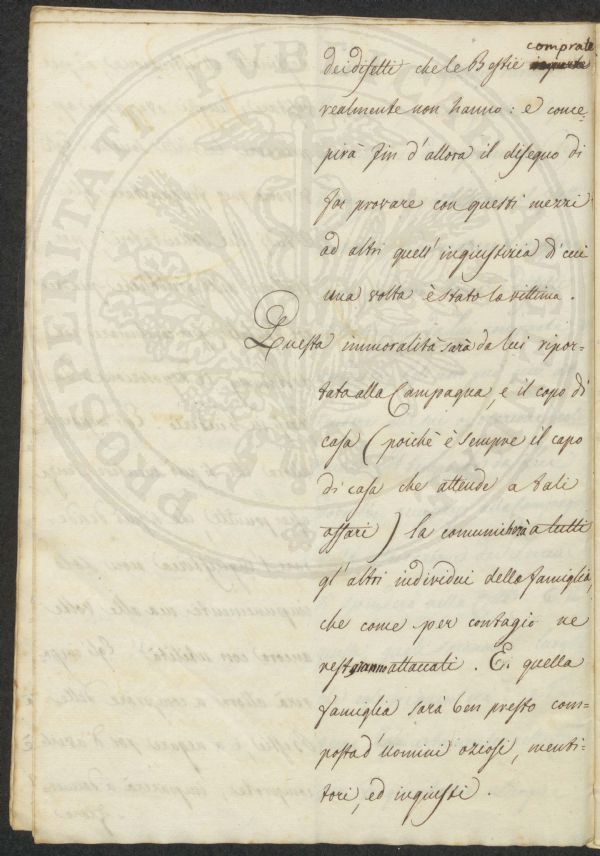 comprate
dei difetti che le Bestie
realmente non hanno: e conce-
pirà fin d'allora il disegno di
far provare con questi mezzi
ad altri quell'ingiustizia di cui
una volta è stato la vittima.
Questa immoralità sarà da lui ripor-
tata alla Campagna, e il capo di
casa (poichè è sempre il capo
di casa che attende a tali
affari) la comunicherà a tutti
gl'altri individui della famiglia,
che come per contagio ne
resteranno attaccati. E quella
famiglia sarà ben presto com-
posta d'Uomini oziosi, menti-
tori, ed ingiusti.
PROSPERITATI PUBLICAE